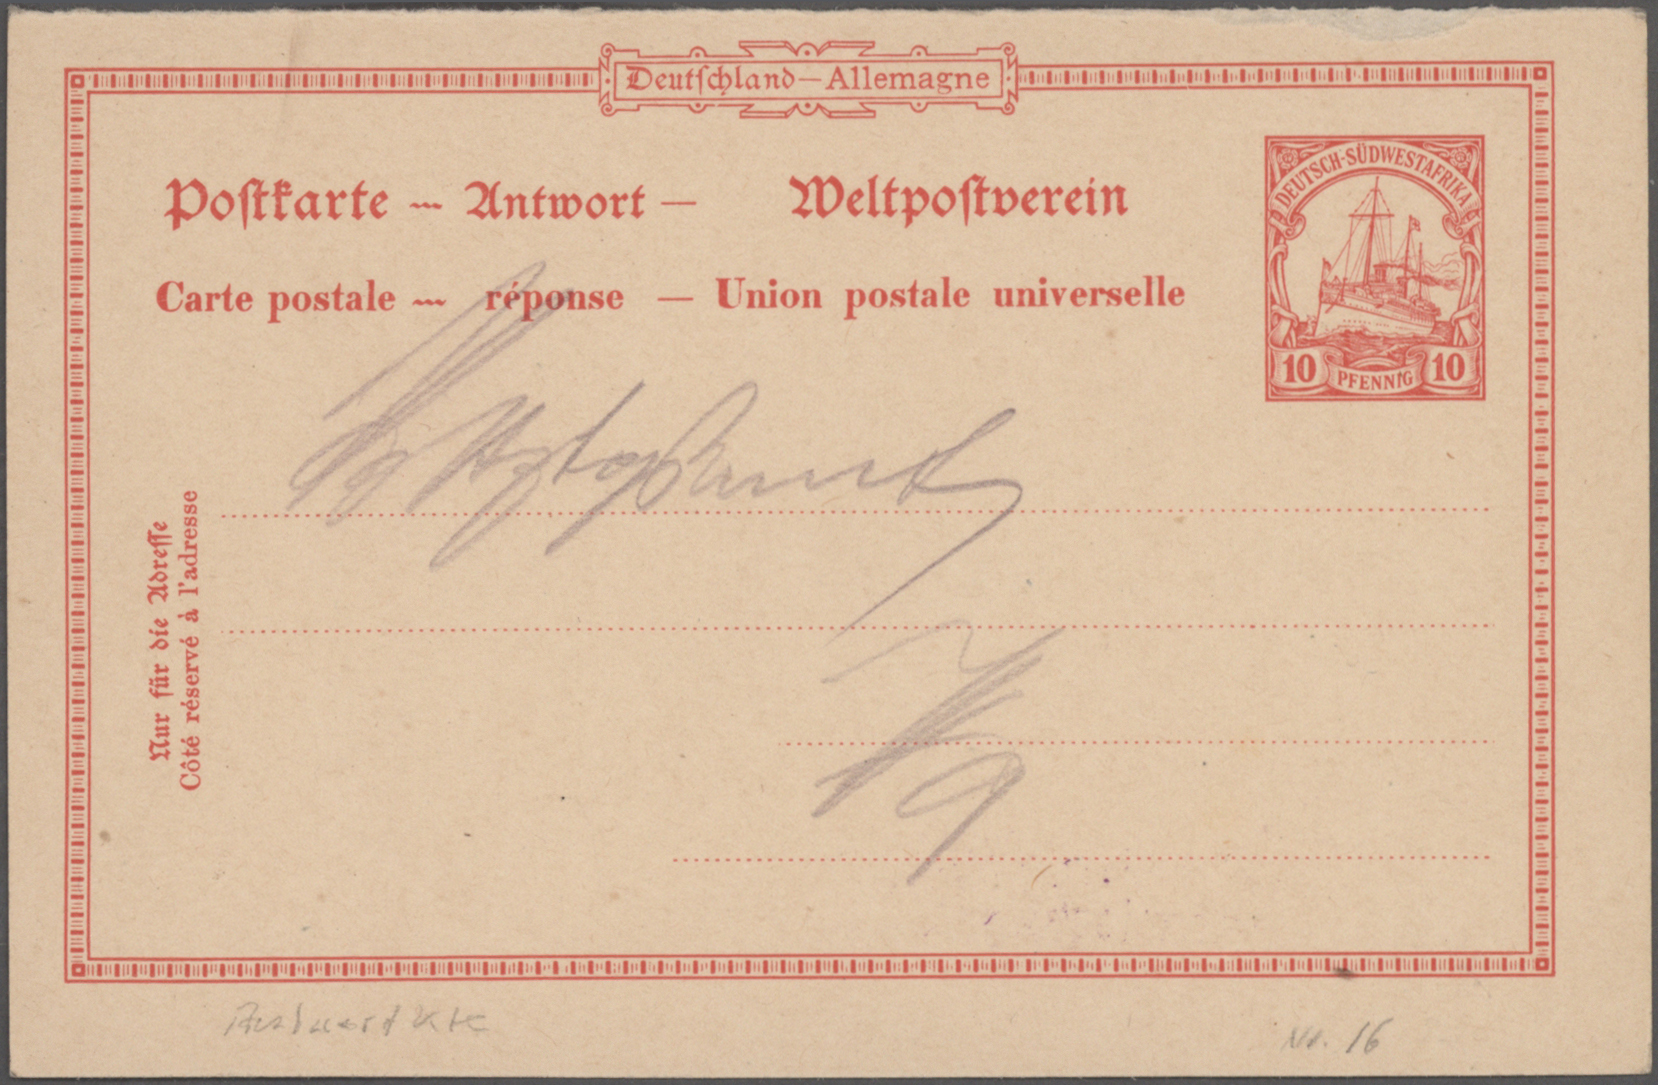 Deutſchland—Allemagne
Poſtkarte — Antwort — Weltpoſtverein
Carte postale — réponse — Union postale universelle
DEUTSCH-SÜDWESTAFRIKA
10 PFENNIG 10
Nur für die Adreſſe
Côté réservé à l'adresse
Nr. 16